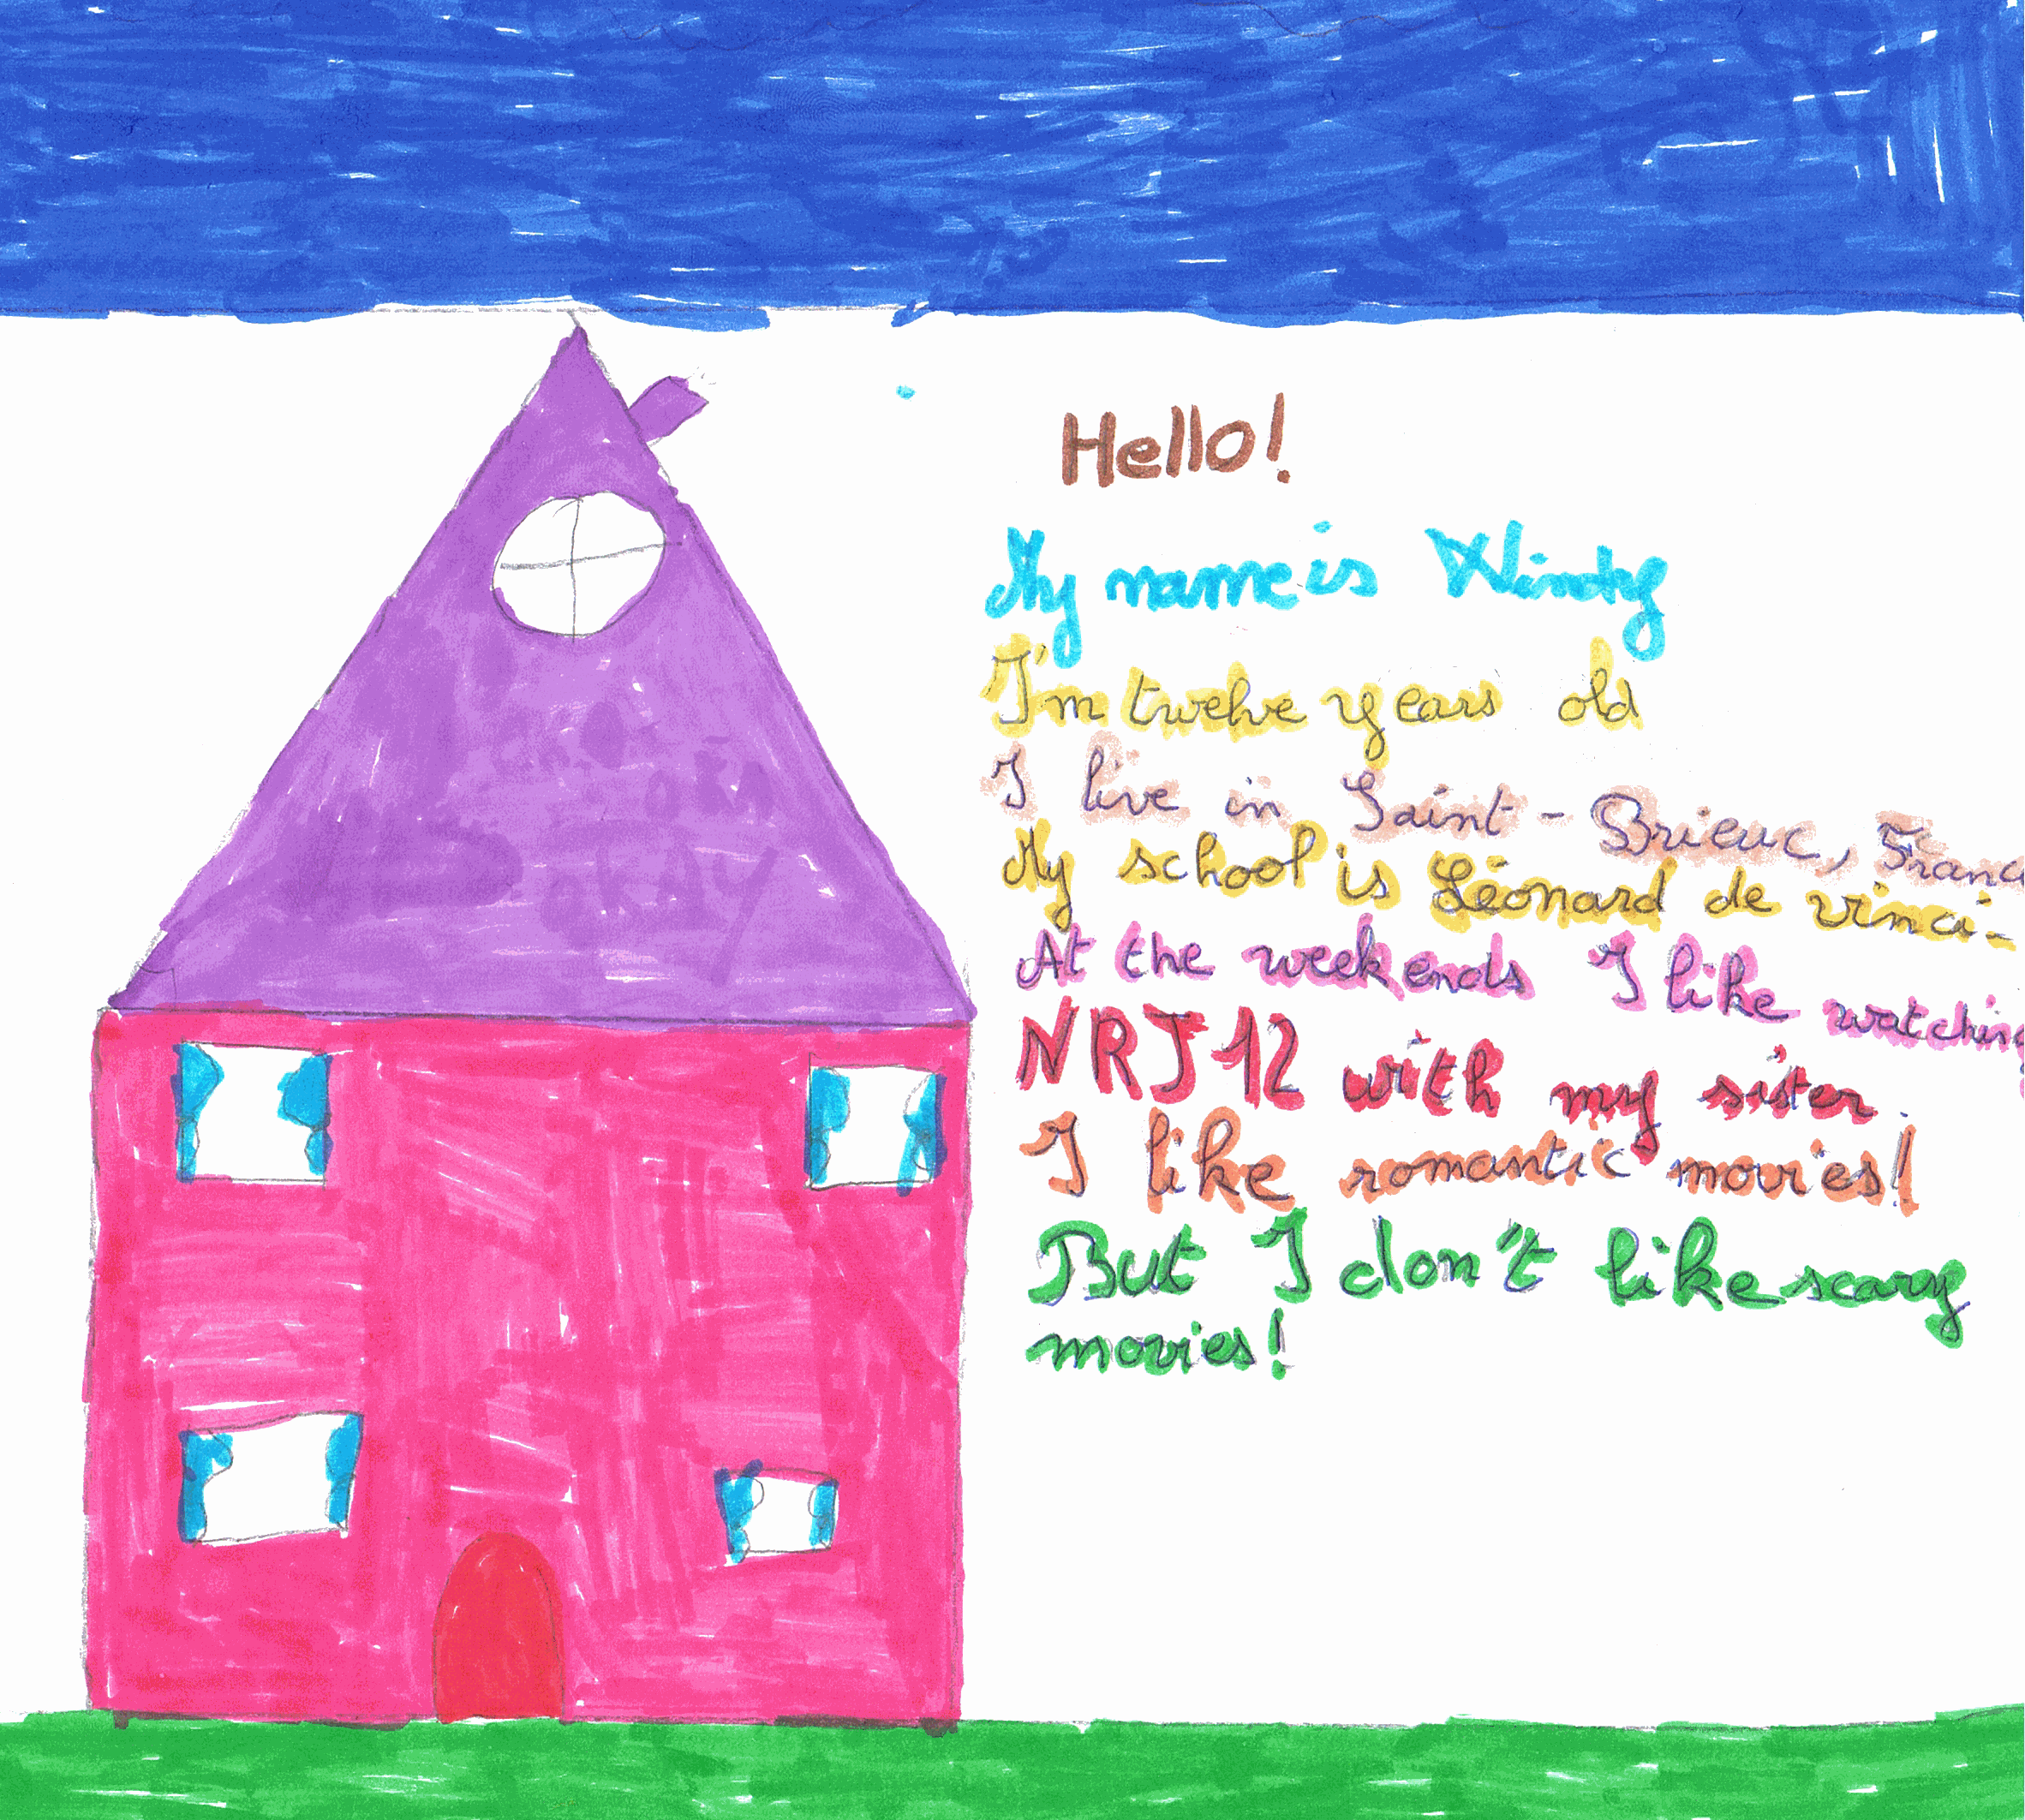 Hello!
My name is Windy
I'm twelve years old
I live in Saint-Brieuc, Franc
My school is Léonard de vinci-
At the weekends I like watching
NRJ12 with my sister
I like romantic movies!
But I don't like scary
movies!